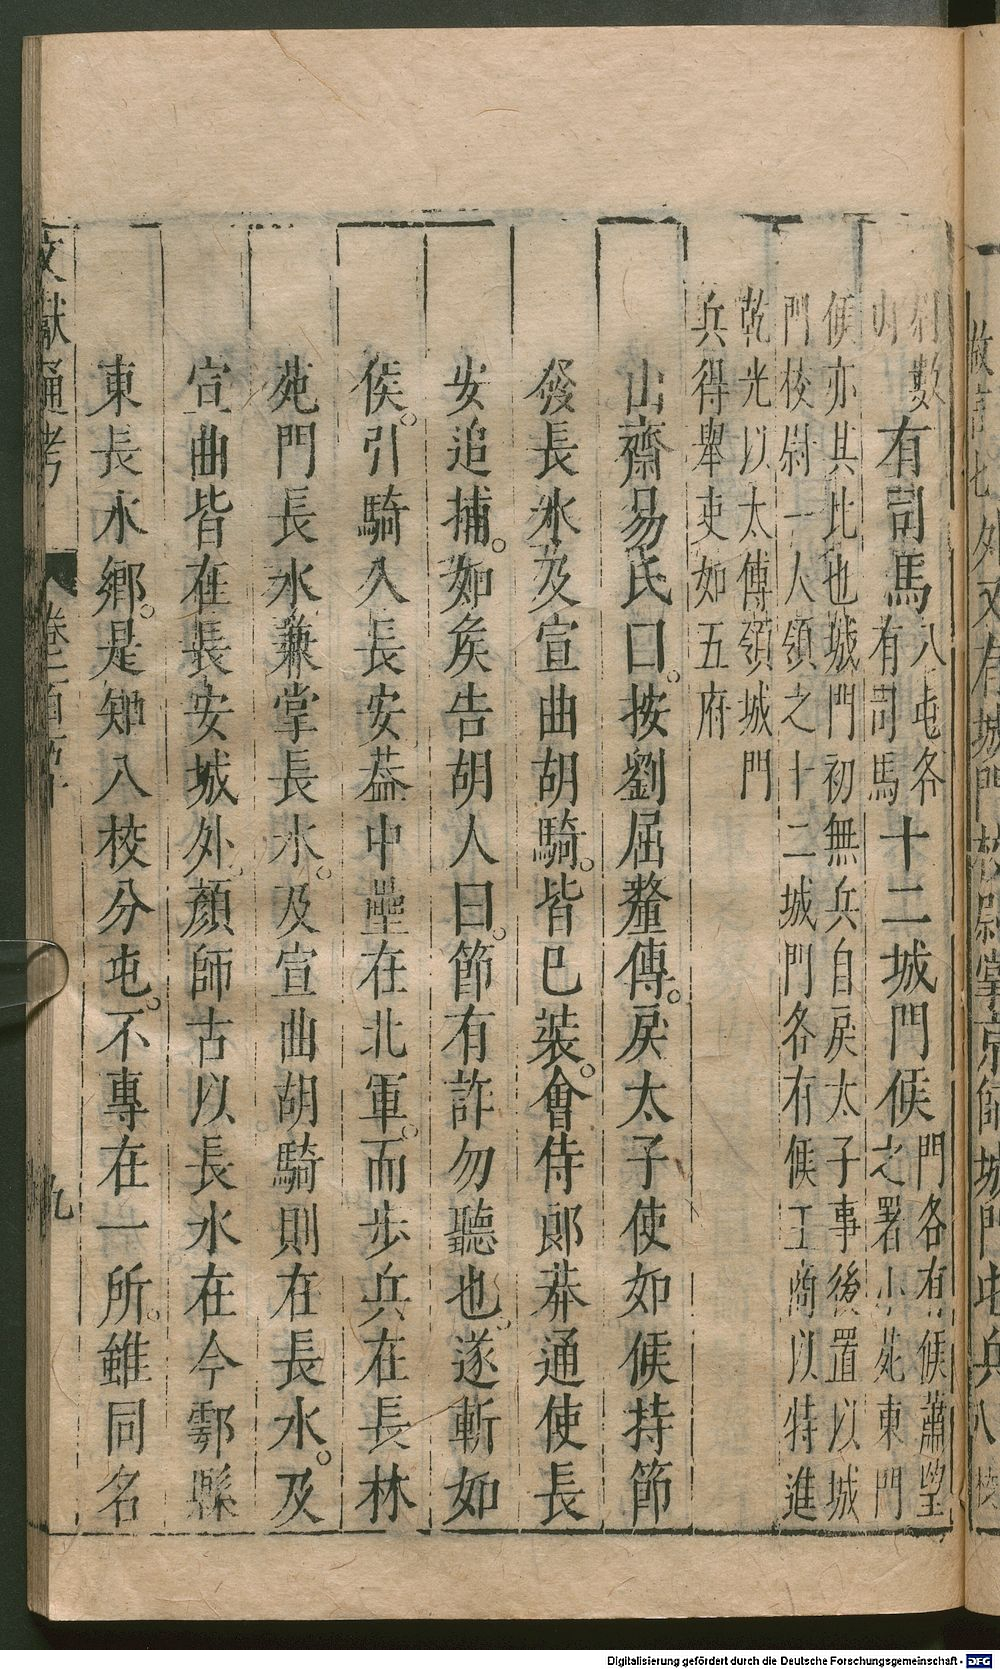 數有司馬八屯各有司馬十二城門候門各有候蕭望之署小苑東門
候亦其比也城門初無兵自戾太子事後置以城
門校尉一人領之十二城門各有候王商以特進
乾光以太傅領城門
兵得舉吏如五府
山齋易氏曰。按劉屈氂傳。戾太子使如候持節
發長水及宣曲胡騎。皆已裝。會侍郎莽通使長
安追捕。如矦告胡人曰。節有詐勿聽也。遂斬如
侯。引騎入長安葢中壘在北軍。而歩兵在長林
苑門長水兼掌長水。及宣曲胡騎則在長水。及
宣曲皆在長安城外。顏師古以長水在今鄠縣
東長水鄉。是知八校分屯。不專在一所。雖同名
文獻通考
九
Digitalisierung gefördert durch die Deutsche Forschungsgemeinschaft - DFG